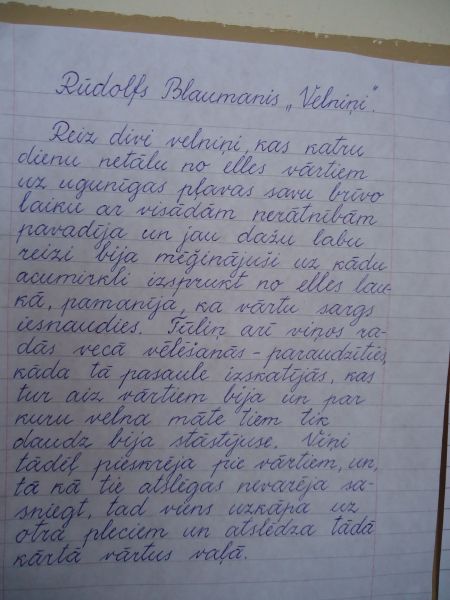 Rūdolfs Blaumanis „Velniņi".
Reiz divi velniņi, kas katru
dienu netālu no elles vārtiem
uz ugunīgas pļavas savu brīvo
laiku ar visādām nerātnībām
pavadīja un jau dažu labu
reizi bija mēģinājuši uz kādu
acumirkli izsprukt no elles lau-
kā, pamanīja, ka vārtu sargs
iesnaudies. Tūliņ arī viņos ra-
dās vecā vēlēšanās - paraudzīties,
kāda tā pasaule izskatījās, kas
tur aiz vārtiem bija un par
kuru velna māte tiem tik
daudz bija stāstījuse. Viņi
tādēļ pieskrēja pie vārtiem, un,
tā kā tie atslēgas nevarēja sa-
sniegt, tad viens uzkāpa uz
otra pleciem un atslēdza tādā
kārtā vārtus vaļā.